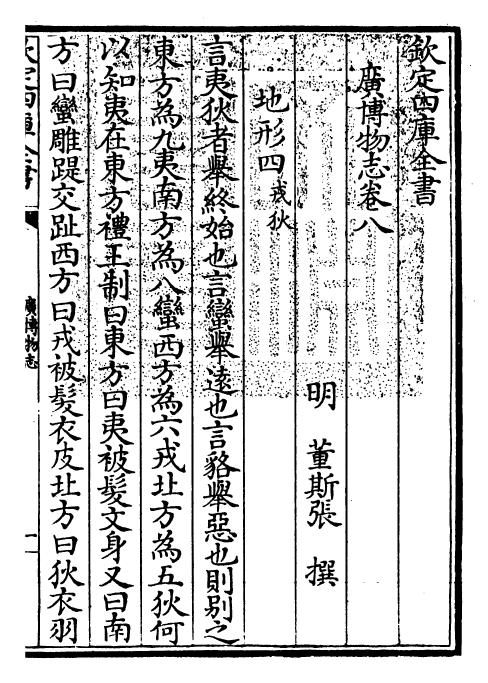 欽定四庫全書
廣博物志卷八
明 董斯張 撰
地形四戎狄
言夷狄者舉終始也言蠻舉遠也言貉舉惡也則别之
東方為九夷南方為八蠻西方為六戎北方為五狄何
以知夷在東方禮王制曰東方曰夷被髮文身又曰南
方曰蠻雕踶交趾西方曰戎被髮衣皮北方曰狄衣羽
欽定四庫全書
廣博物志
一